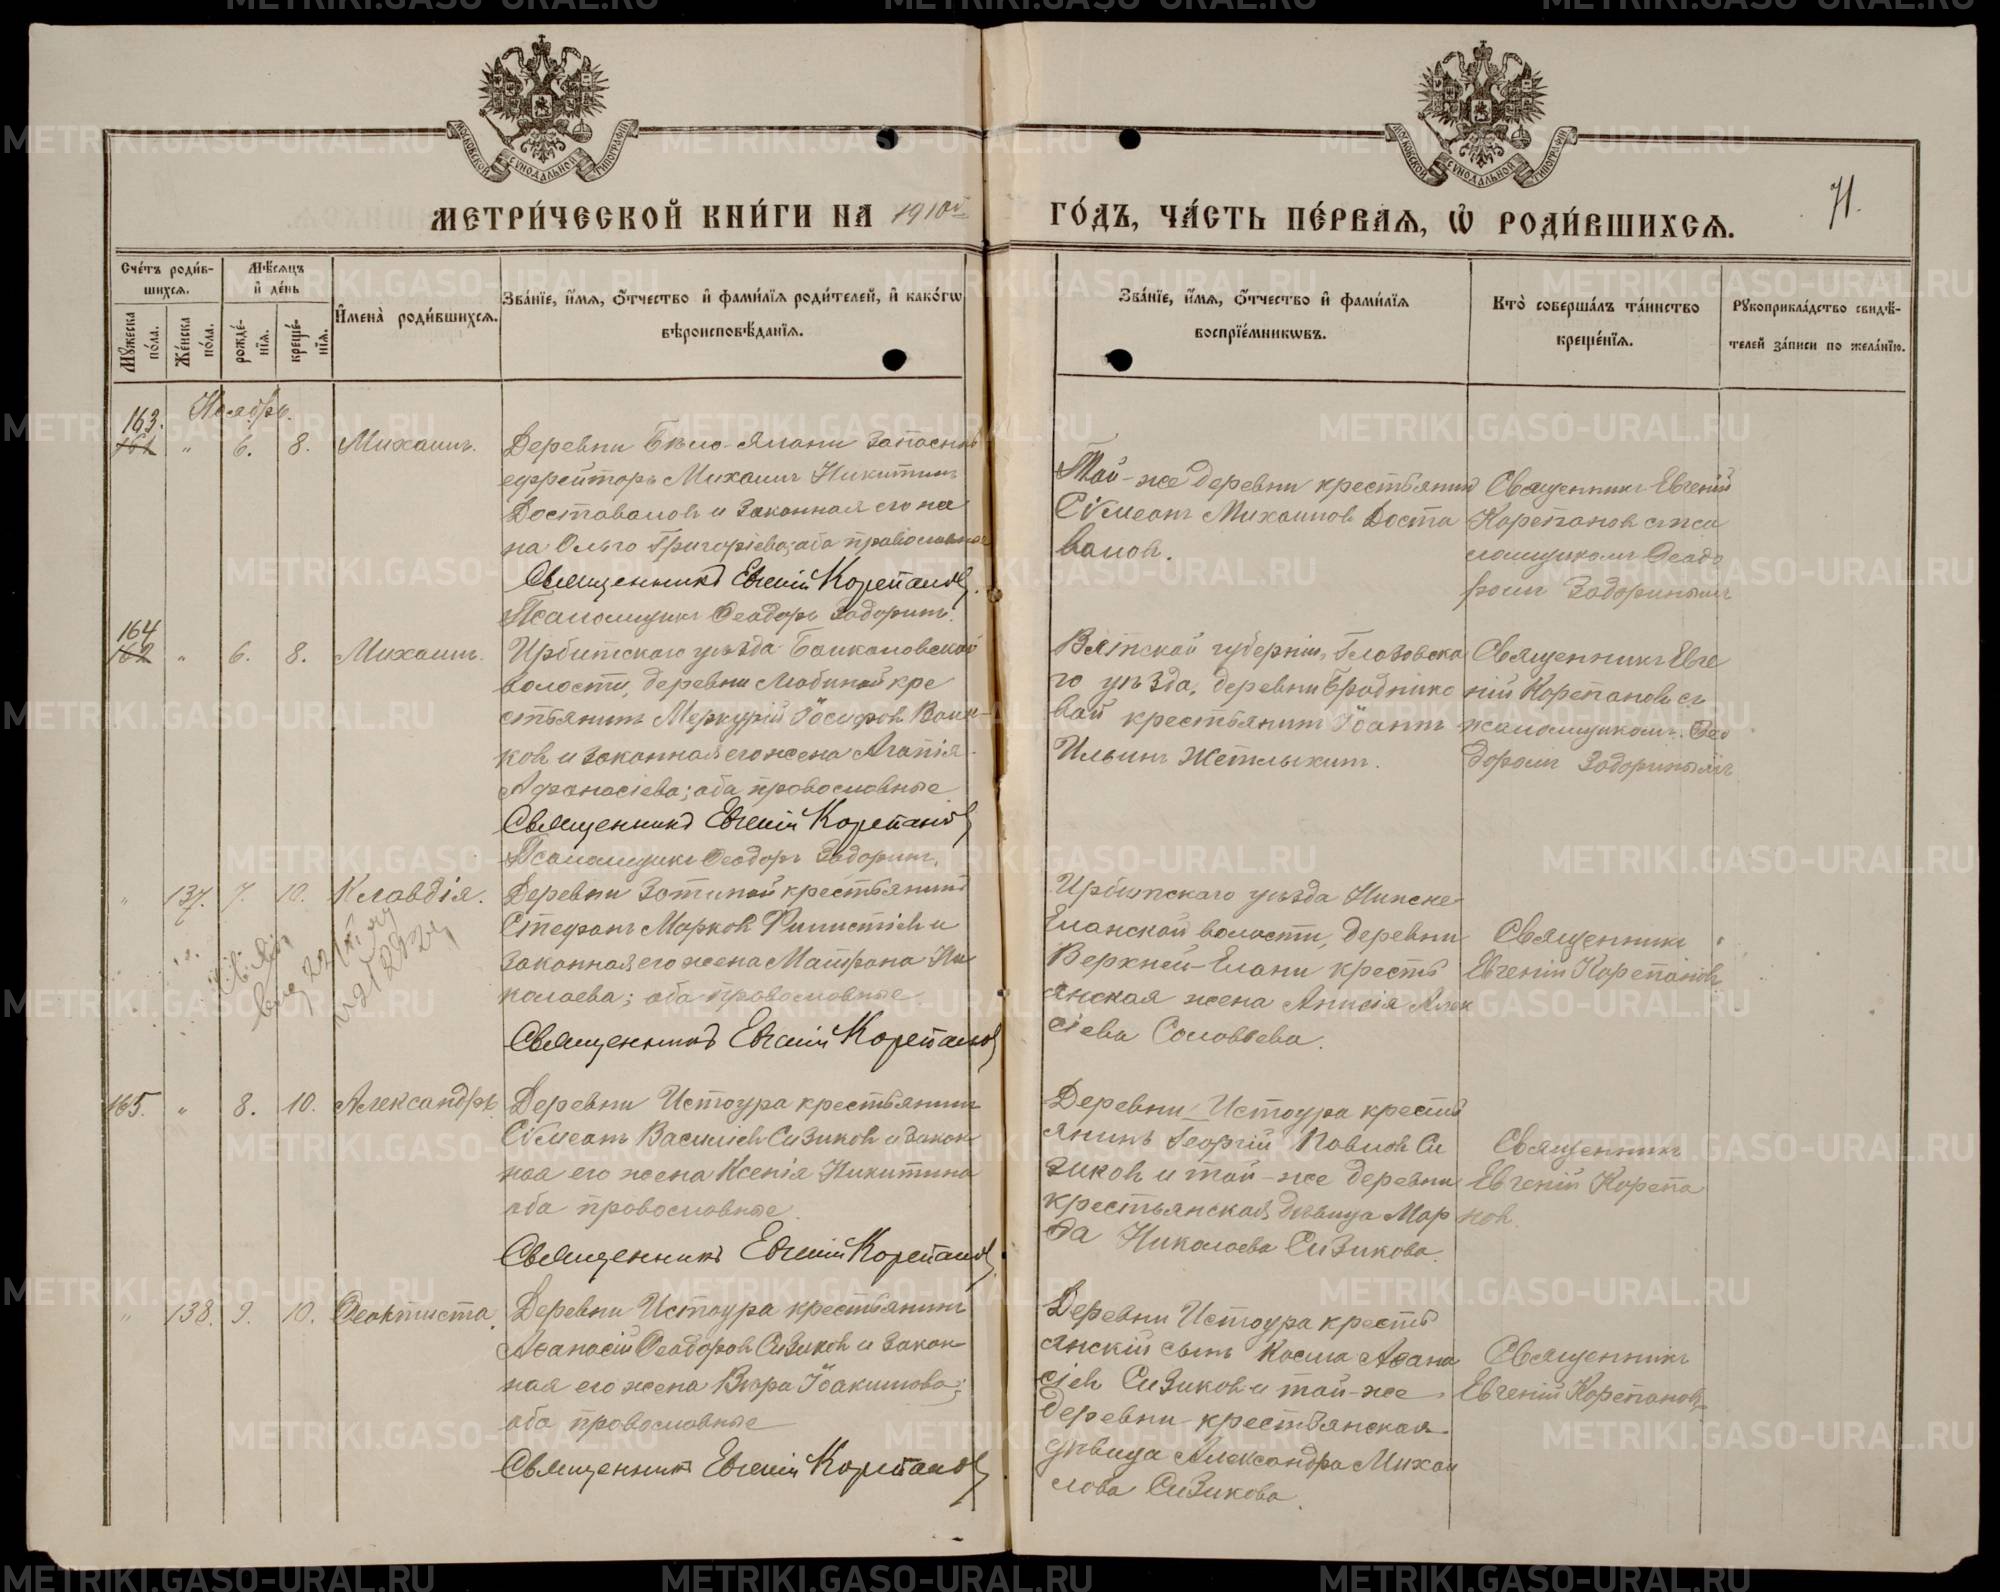 МЕТРИ́ЧЕСКОЙ КНИ́ГИ НА 1910й ГО́ДЪ, ЧА́СТЬ ПЕ́РВАѦ, Ѿ РОДИ́ВШИХСѦ.
71.
Сче́тъ роди́в-
шихсѧ.
Мꙋжеска по́ла.
Же́нска по́ла.
Мѣ́сѧцъ и҆ де́нь
рожде́-нїѧ.
креще́-нїѧ.
И҆мена̀ роди́вшихсѧ.
Зва́нїе, и҆́мѧ, ѻ҆́тчество и҆ фами́лїѧ роди́телей, и҆ како́гѡ
вѣроисповѣ́данїѧ.
Зва́нїе, и҆́мѧ, ѻ҆́тчество и҆ фами́лїѧ
воспрїе́мникѡвъ.
Кто̀ соверша́лъ та́инство
креще́нїѧ.
Рꙋкоприкла́дство свидѣ́-
телей за́писи по жела́нїю.
Ноябрь.
163.
161 " 6. 8. Михаилъ.
Деревни Бѣло-Яланки запасный
ефрейторъ Михаилъ Никитинъ
Доставаловъ и законная его же
на Ольга Григорiева; оба православные
Священникъ Евгенiй Корепановъ.
Псаломщикъ Ѳеодоръ Задоринъ.
Той-же деревни крестьянинъ
Сѵмеонъ Михаиловъ Доста
валовъ.
Священникъ Евгенiй
Корепановъ съ пса
ломщикомъ Ѳеодо
ромъ Задоринымъ
164
162 " 6. 8. Михаилъ.
Ирбитскаго уѣзда Байкаловской
волости, деревни Любиной кре
стьянинъ Меркурiй Іосифовъ Волк-
ковъ и законная его жена Агапiя
Аѳанасiева; оба православные
Священникъ Евгенiй Корепановъ
Псаломщикъ Ѳеодоръ Задоринъ.
Вятской губернiи, Глазовска
го уѣзда, деревни Бродников
вой крестьянинъ Іоаннъ
Ильинъ Жетлыхинъ.
Священникъ Евге
нiй Корепановъ съ
псаломщикомъ Ѳео
доромъ Задоринымъ
" 137. 7. 10. Клавдiя.
Деревни Зотиной крестьянинъ
Стефанъ Марковъ Филистѣевъ и
законная его жена Матрона Ни
колаева; оба православные.
Священникъ Евгенiй Корепановъ
Ирбитскаго уѣзда Нижне-
Еланской волости, деревни
Верхней-Елани кресть
янская жена Анисiя Алек
сiева Соловьева.
Священникъ
Евгенiй Корепановъ
165. " 8. 10. Александръ.
Деревни Истоура крестьянинъ
Сѵмеонъ Василiевъ Сизиковъ и закон
ная его жена Ксенiя Никитина
оба православные.
Священникъ Евгенiй Корепановъ
Деревни Истоура кресть
янинъ Георгiй Павловъ Си
зиковъ и той-же деревни
крестьянская дѣвица Мар
ѳа Николаева Сизикова.
Священникъ
Евгенiй Корепа
новъ.
" 138. 9. 10. Ѳеоктиста.
Деревни Истоура крестьянинъ
Аѳанасiй Ѳеодоровъ Сизиковъ и закон
ная его жена Вѣра Іоакимова;
оба православные
Священникъ Евгенiй Корепановъ
Деревни Истоура кресть
янскiй сынъ Косма Аѳана
сiевъ Сизиковъ и той-же
деревни крестьянская
дѣвица Александра Михаи
лова Сизикова.
Священникъ
Евгенiй Корепановъ